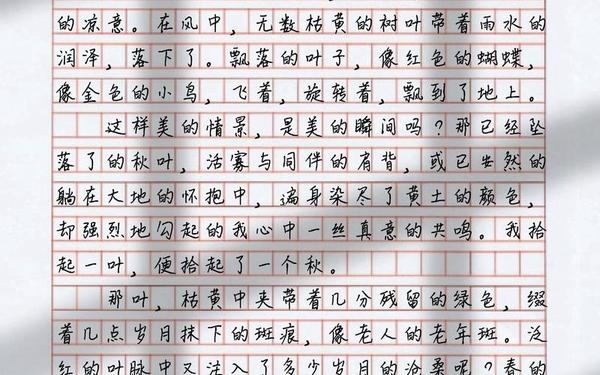 的凉意。在风中，无数枯黄的树叶带着雨水的
润泽，落下了。飘落的叶子，像红色的蝴蝶，
像金色的小鸟，飞着，旋转着，飘到了地上。
这样美的情景，是美的瞬间吗？那已经坠
落了的秋叶，活寡与同伴的肩背，或已安然的
躺在大地的怀抱中，遍身染尽了黄土的颜色，
却强烈地勾起的我心中一丝真意的共鸣。我拾
起一叶，便拾起了一个秋。
那叶，枯黄中夹带着几分残留的绿色，缀
着几点岁月抹下的斑痕，像老人的老年斑。泛
红的叶脉中又注入了多少岁月的沧桑呢？春的